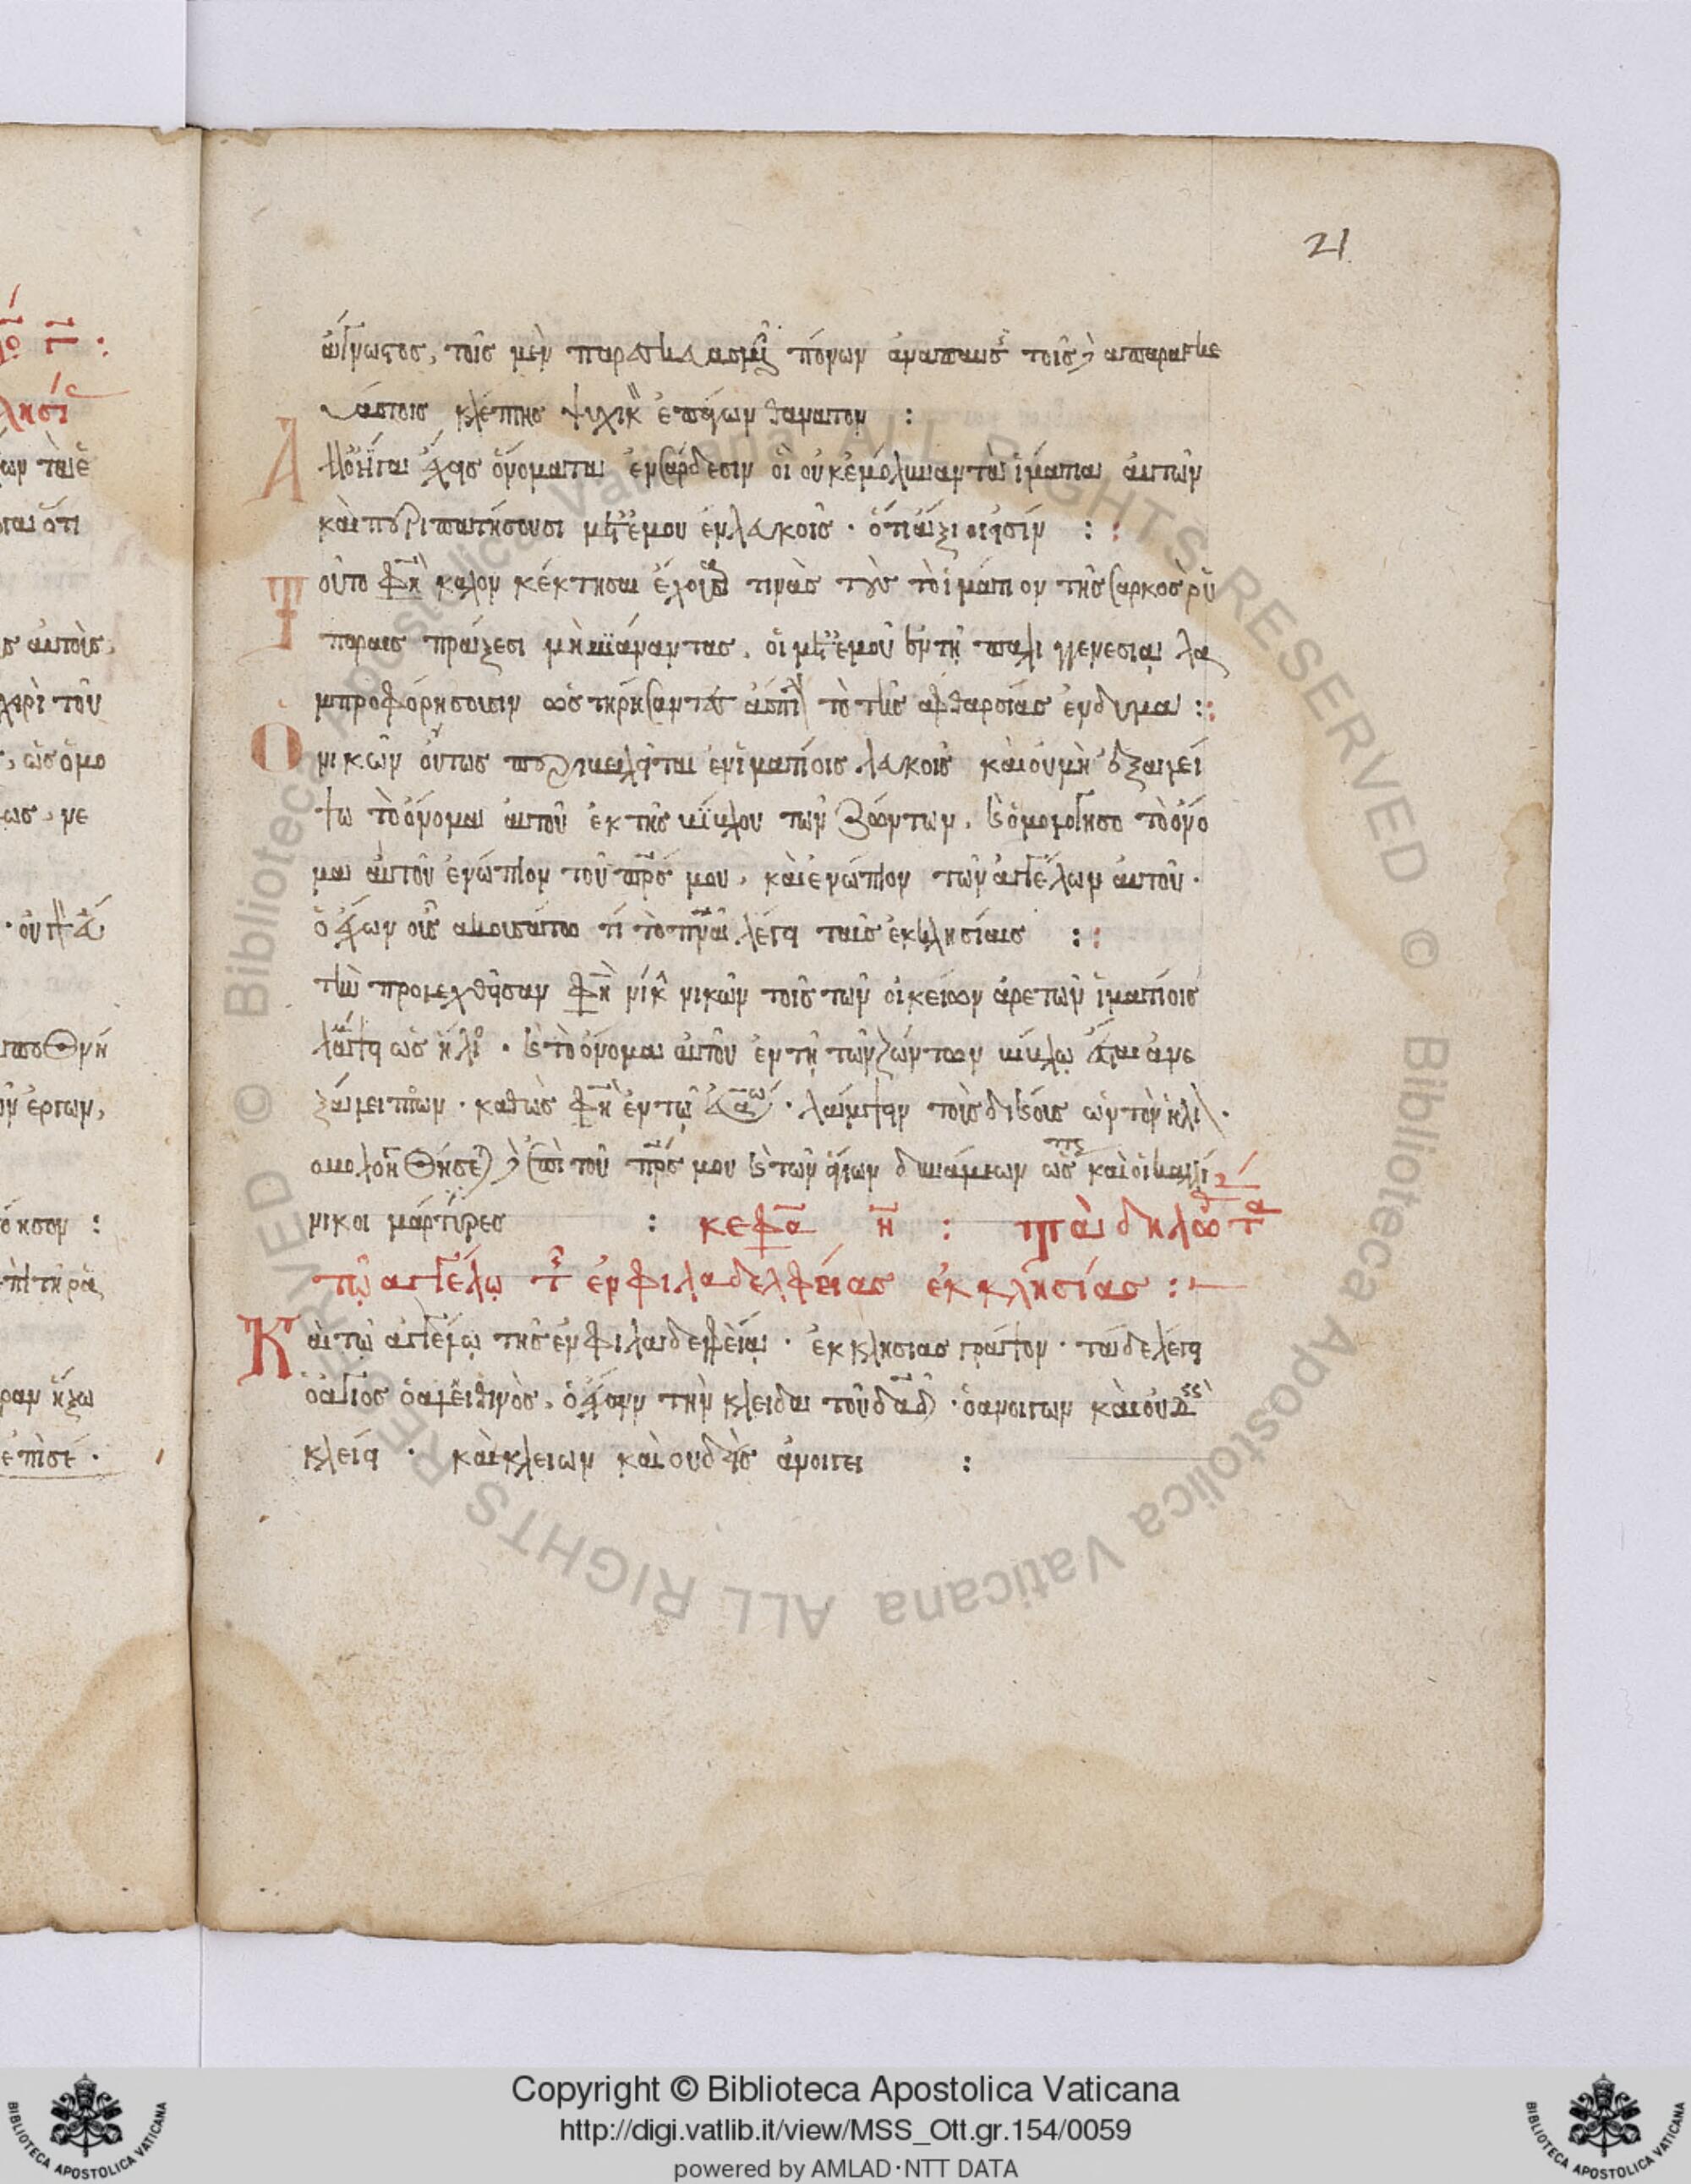 21
ἄγνωστος, τοῖς μὲν παρασκευασμένοις πόνων ἀνάπαυσις τοῖς δὲ ἀπαρασκε
υάστοις κλέπτης ψυχικὸν ἐπάγων θάνατον :
Ἀλλ' ὀλίγα ἔχεις ὀνόματα ἐν σάρδεσιν οἳ οὐκ ἐμόλυναν τὰ ἱμάτια αὐτῶν
καὶ περιπατήσουσι μετ' ἐμοῦ ἐν λευκοῖς · ὅτι ἄξιοι εἰσίν :
Τοῦτο φησὶ καλὸν κέκτησαι ἔχων τινὰς τοὺς τὸ ἱμάτιον τῆς σαρκὸς ῥυ
παραῖς πράξεσι μὴ μιάναντας, οἳ μετ' ἐμοῦ ἐν τῇ παλιγγενεσίᾳ λα
μπροφορήσουσιν ὡς τηρήσαντες ἄσπιλον τὸ τῆς ἀφθαρσίας ἔνδυμα :
Ὁ νικῶν οὕτως περιβαλεῖται ἐν ἱματίοις λευκοῖς καὶ οὐ μὴ ἐξαλεί
ψω τὸ ὄνομα αὐτοῦ ἐκ τῆς βίβλου τῶν ζώντων, καὶ ὁμολογήσω τὸ ὄνο
μα αὐτοῦ ἐνώπιον τοῦ πρς μου, καὶ ἐνώπιον τῶν ἀγγέλων αὐτοῦ ·
ὁ ἔχων οὖς ἀκουσάτω τί τὸ πνα λέγει ταῖς ἐκκλησίαις :
τὴν προλεχθεῖσαν φησὶ νίκην νικῶν τοῖς τῶν οἰκείων ἀρετῶν ἱματίοις
λάμψει ὡς ἥλιος · καὶ τὸ ὄνομα αὐτοῦ ἐν τῇ τῶν ζώντων βίβλῳ ἔσται ἀνε
ξάλειπτον · καθὼς φησὶ ἐν τῷ · λάμψειν τοὺς δικαίους ὡς τὸν ἥλιον ·
ὁμολογηθήσεται δὲ ἐπὶ τοῦ πρς μου καὶ τῶν ἁγίων δυνάμεων ὥσπερ καὶ οἱ καλλί
νικοι μάρτυρες : κεφα η : τὰ δηλωθέντα
τῷ ἀγγέλῳ τῆς ἐν φιλαδελφείας ἐκκλησίας :
Καὶ τῷ ἀγγέλῳ τῆς ἐν φιλαδελφείᾳ · ἐκκλησίας γράψον · τάδε λέγει
ὁ ἅγιος ὁ ἀληθινὸς, ὁ ἔχων τὴν κλεῖδα τοῦ δαδ · ὁ ἀνοίγων καὶ οὐδεὶς
κλείει · καὶ κλείων καὶ οὐδεὶς ἀνοίγει :
Copyright © Biblioteca Apostolica Vaticana
http://digi.vatlib.it/view/MSS_Ott.gr.154/0059
powered by AMLAD·NTT DATA